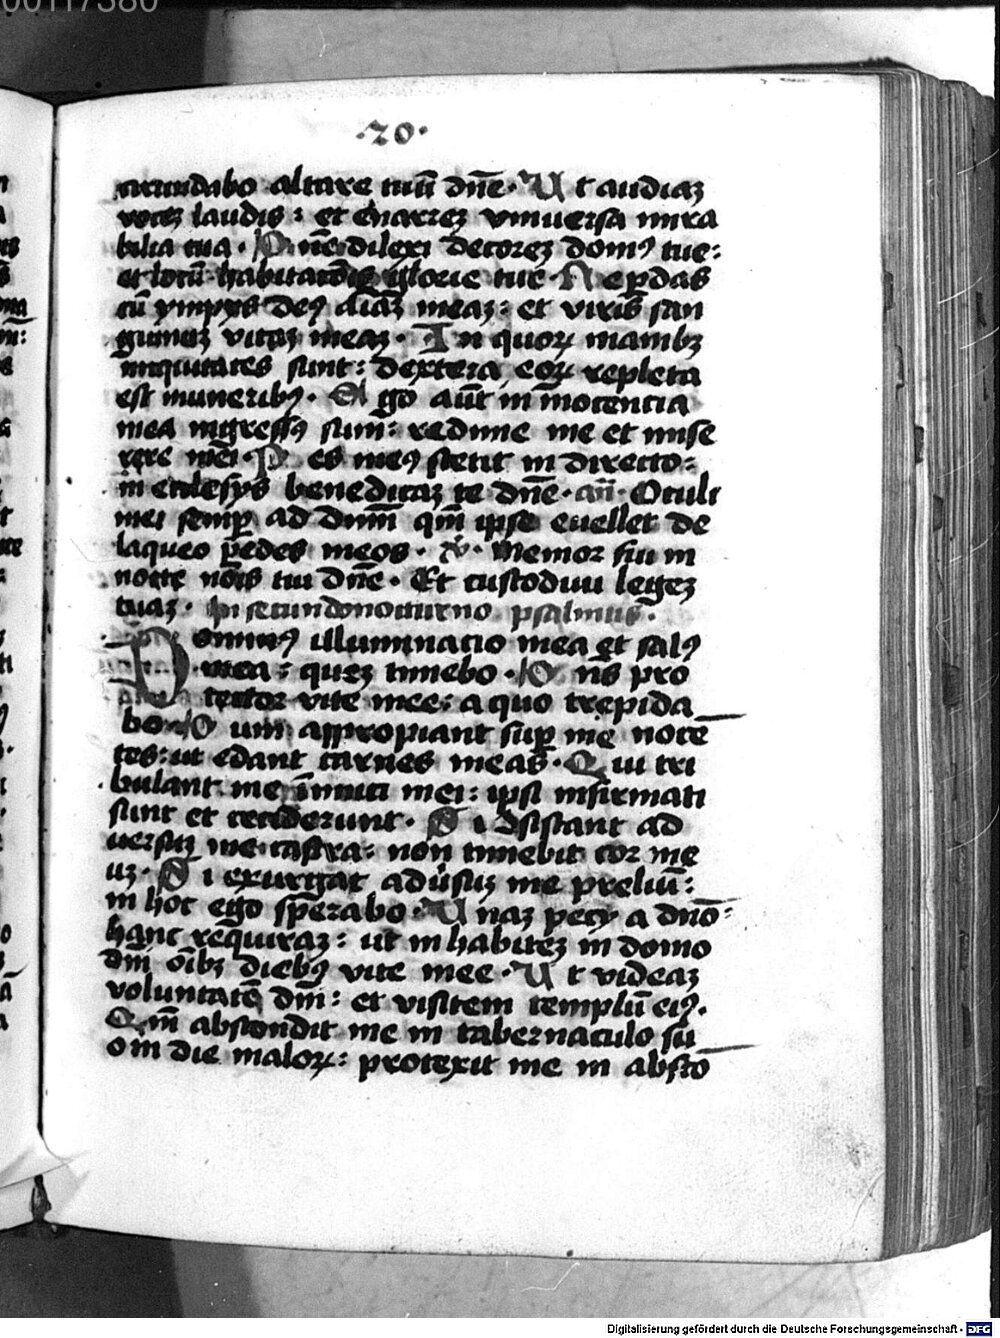 00117380
·20·
circundabo altare tuū dn̄e · Ut audiaꝫ
voceꝫ laudis : et enarreꝫ vniuersa mira
bilia tua · Dn̄e dilexi decoreꝫ domꝰ tue :
et locū habitacōis glorie tue · Ne ꝑdas
cū ympijs deꝰ aīaꝫ meaꝫ : et viris san
guineꝫ vitaꝫ meaꝫ · In quoꝝ manibꝫ
iniquitates sunt : dextera eoꝝ repleta
est muneribꝰ · Ego aūt in īnocencia
mea ingressꝰ sum : redime me et mise
rere mei · Pes meꝰ stetit in directo :
in ecclesijs benedicaꝫ te dn̄e · an̄ · Oculi
mei semꝑ ad dnm̄ qm̄ ipse euellet de
laqueo pedes meos · v̄ · Memor fui in
nocte nōis tui dn̄e · Et custodiui legeꝫ
tuaꝫ · In secundo nocturno psalmus ·
Dominꝰ illuminacio mea et salꝰ
mea : queꝫ timebo · Dn̄s pro
tector vite mee : a quo trepida
bo · Dum appropiant suꝑ me noce
tes : ut edant carnes meas · Qui tri
bulant me īmici mei : ipsi infirmati
sunt et ceciderunt · Si ↄsistant ad
uersuꝫ me castra : non timebit cor me
uꝫ · Si exurgat adūsuꝫ me preliū :
in hoc ego sperabo · Unaꝫ pecij a dnō :
hanc requiraꝫ : ut inhabiteꝫ in domo
dnī oībꝫ diebꝰ vite mee · Ut videaꝫ
voluntatē dnī : et visitem templū eiꝰ ·
Qm̄ abscondit me in tabernaculo su
o in die maloꝝ : protexit me in absco
Digitalisierung gefördert durch die Deutsche Forschungsgemeinschaft - DFG